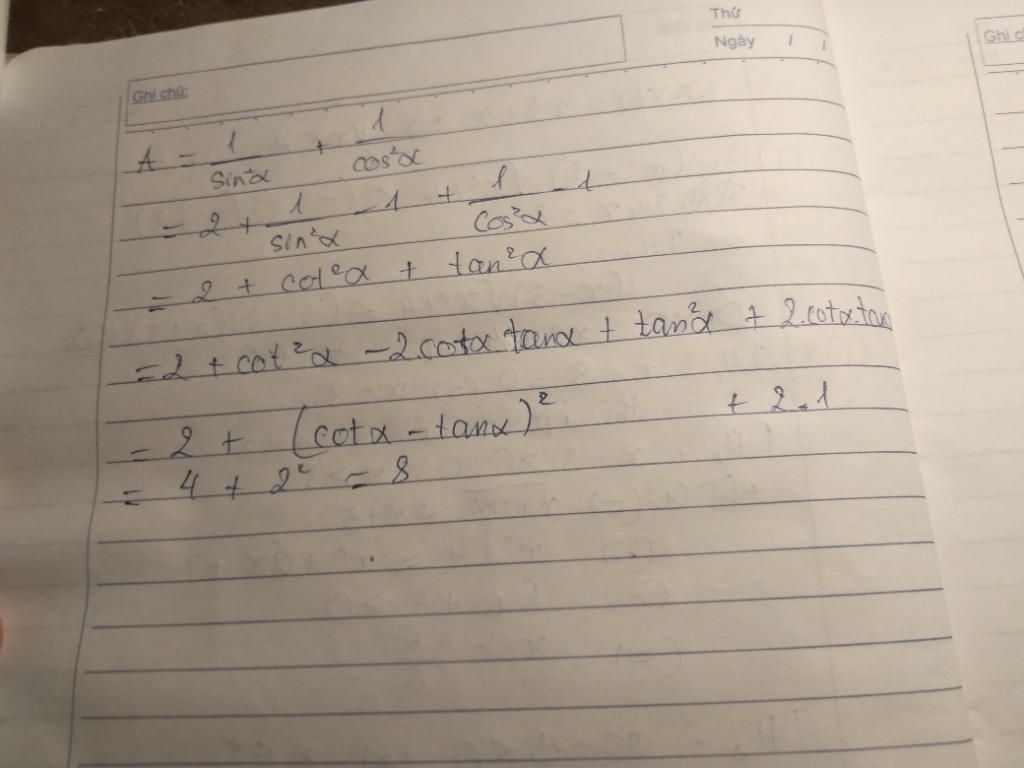 Thứ
Ngày / /
Ghi chú:
Ghi c
A = 1/sin²α + 1/cos²α
= 2 + 1/sin²α - 1 + 1/cos²α - 1
= 2 + cot²α + tan²α
= 2 + cot²α - 2.cotα.tanα + tan²α + 2.cotα.tan
= 2 + (cotα - tanα)² + 2.1
= 4 + 2² = 8